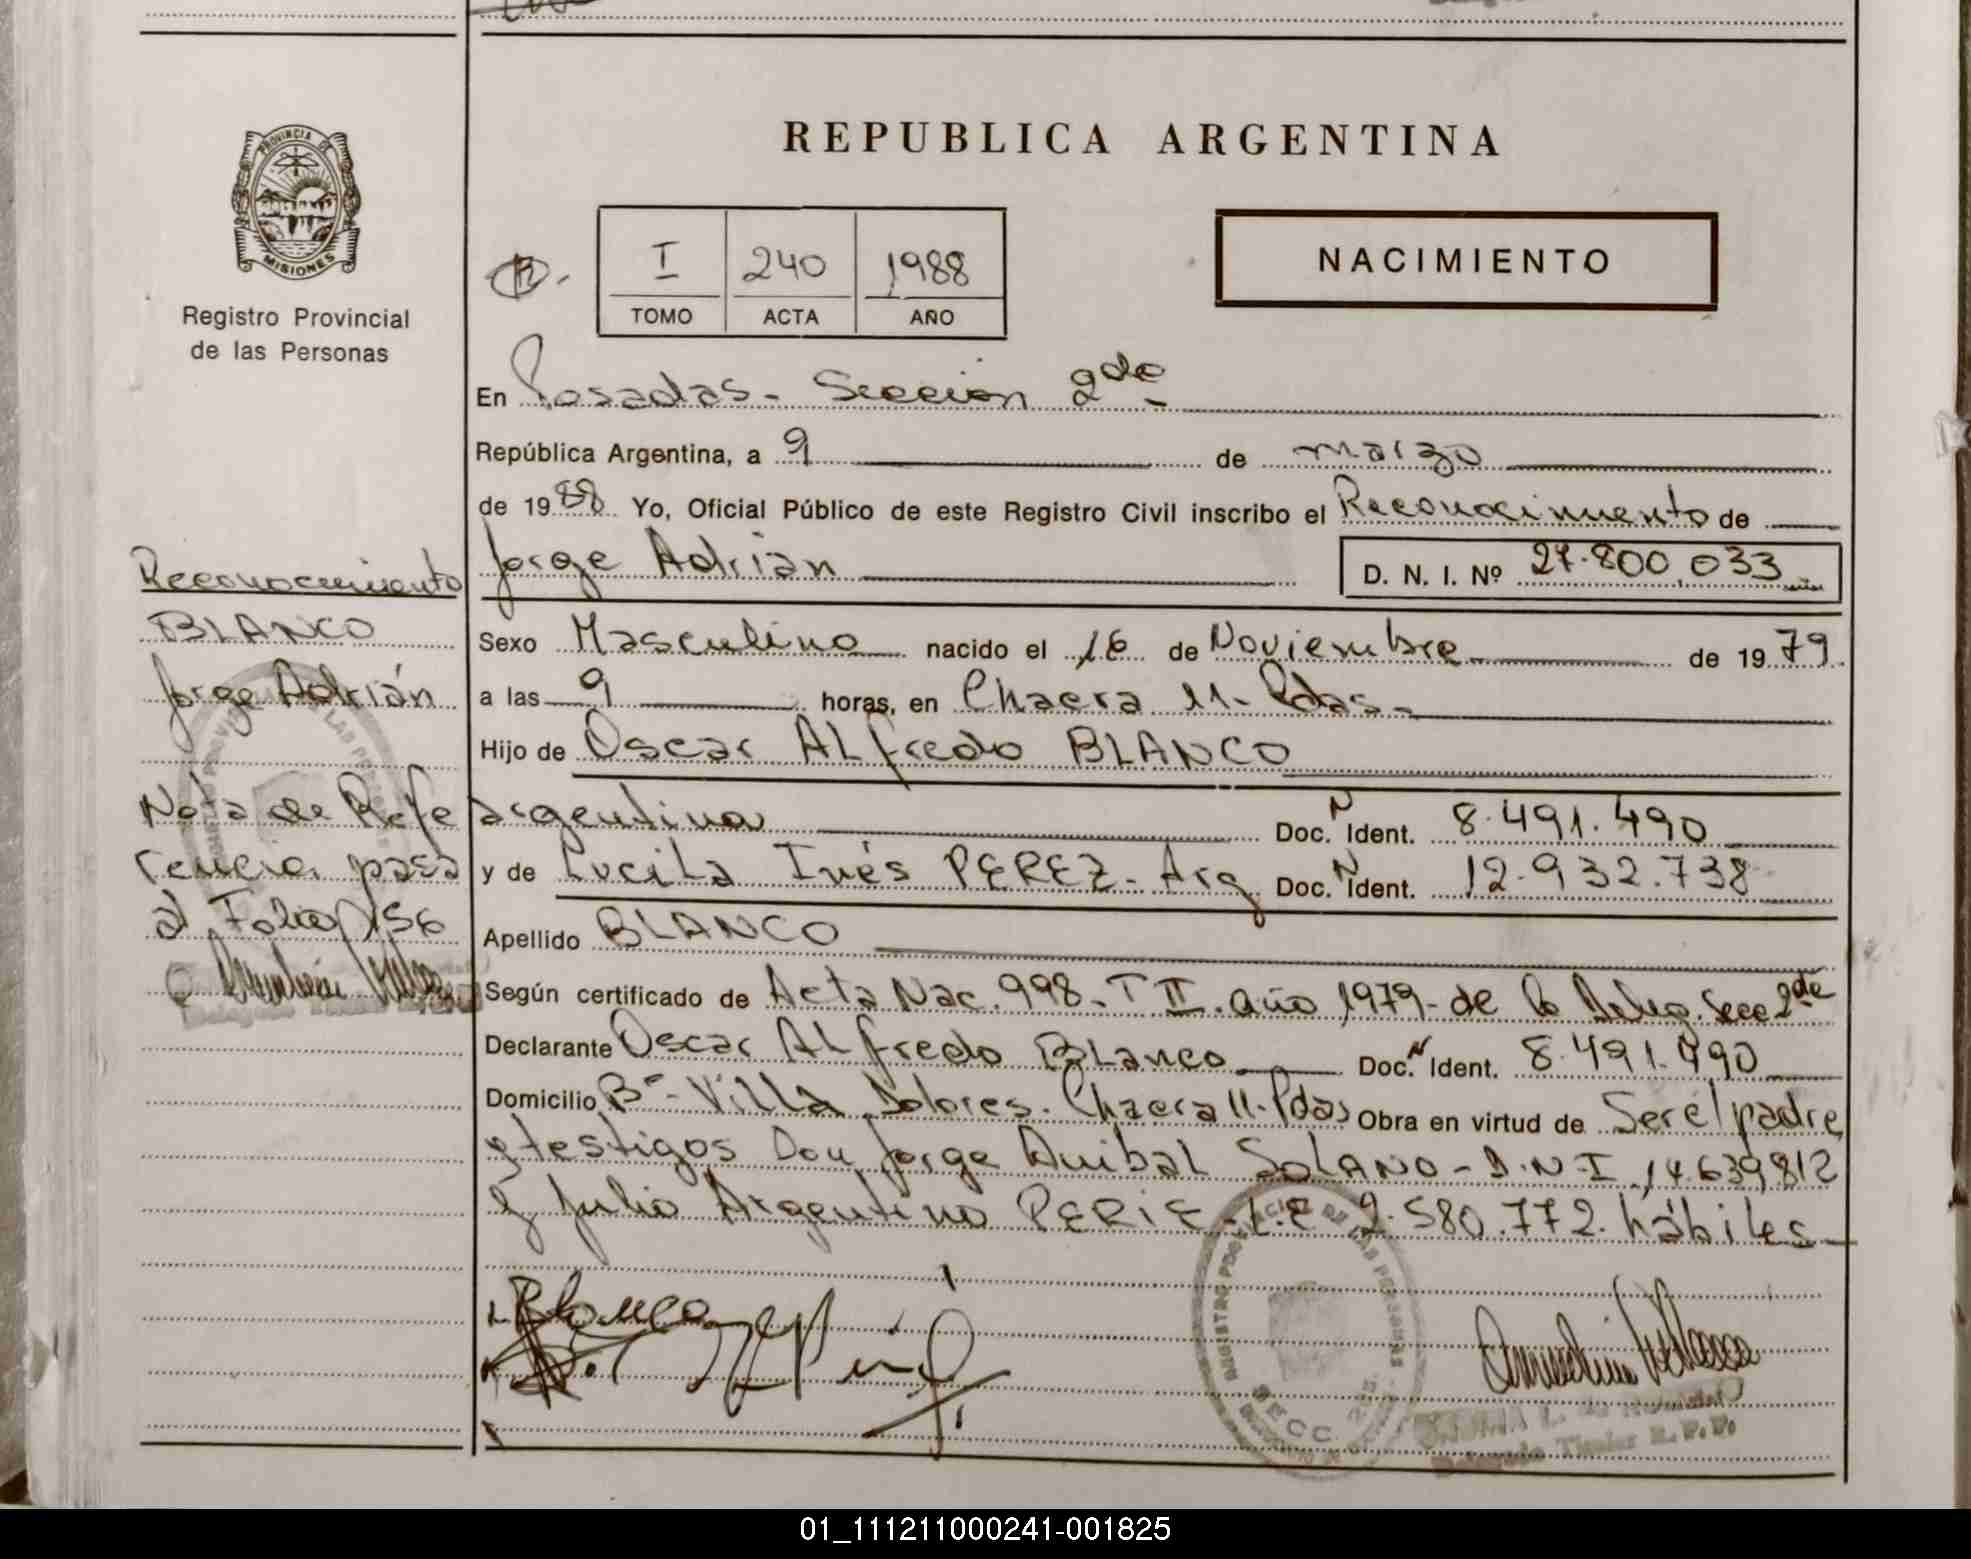 REPUBLICA ARGENTINA
PROVINCIA DE
MISIONES
Registro Provincial
de las Personas
I 240 1988
TOMO ACTA AÑO
NACIMIENTO
En Posadas - Sección 2da
República Argentina, a 9 de marzo
de 1988 Yo, Oficial Público de este Registro Civil inscribo el Reconocimiento de
Jorge Adrián D. N. I. Nº 27.800.033
Sexo Masculino nacido el 16 de Noviembre de 1979
a las 9 horas, en Chacra 11 - Pdas -
Hijo de Oscar Alfredo BLANCO
argentina Doc. N Ident. 8.491.490
y de Lucila Inés PEREZ - Arg Doc. N Ident. 12.932.738
Apellido BLANCO
Según certificado de Acta Nac. 998 - T II. año 1979 - de la Deleg. Secc 2da
Declarante Oscar Alfredo Blanco Doc. N Ident. 8.491.490
Domicilio Bº - Villa Dolores. Chacra 11 - Pdas Obra en virtud de Ser el padre
y testigos Don Jorge Anibal SOLANO - D.N.I 14.639.812
y Julio Argentino PERIE - L.E 9.580.772. hábiles -
Reconocimiento
BLANCO
Jorge Adrián
Nota de Refe
rencia pasa
al Folio 156
Blanco
REGISTRO PROVINCIAL DE LAS PERSONAS
SECC. 2
Delegado Titular R.P.P.
01_111211000241-001825